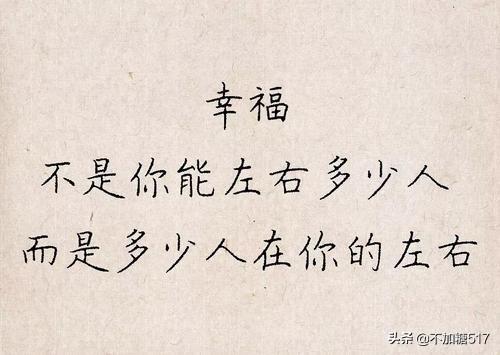 幸福
不是你能左右多少人
而是多少人在你的左右
头条@不加糖517